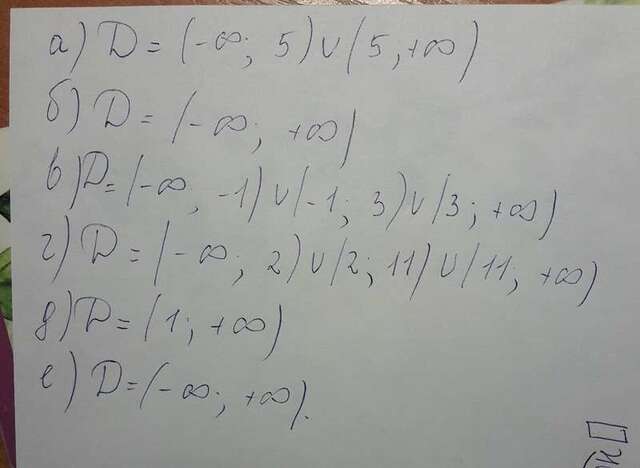 а) D = (-∞; 5) ∪ (5, +∞)
б) D = (-∞; +∞)
в) D = (-∞, -1) ∪ (-1; 3) ∪ (3; +∞)
г) D = (-∞; 2) ∪ (2; 11) ∪ (11; +∞)
д) D = (1; +∞)
е) D = (-∞; +∞).